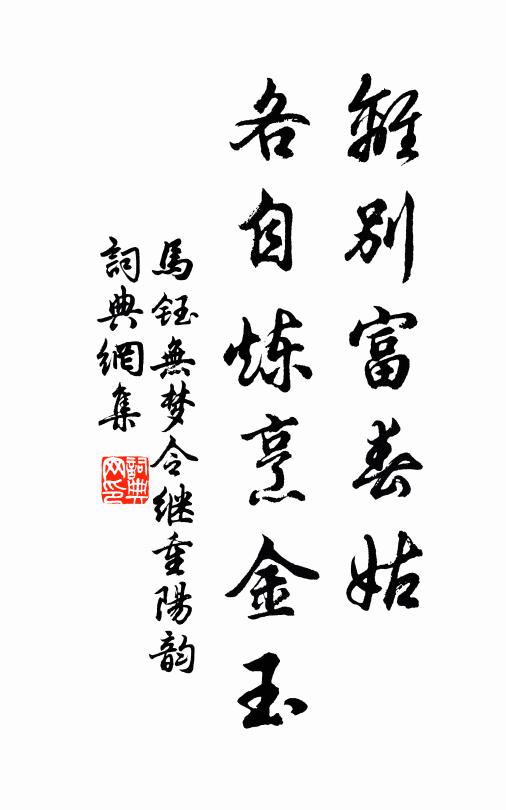 離别富春姑
各自炼烹金玉
馬鈺無梦令继重陽韵
詞典網集
詞典网印